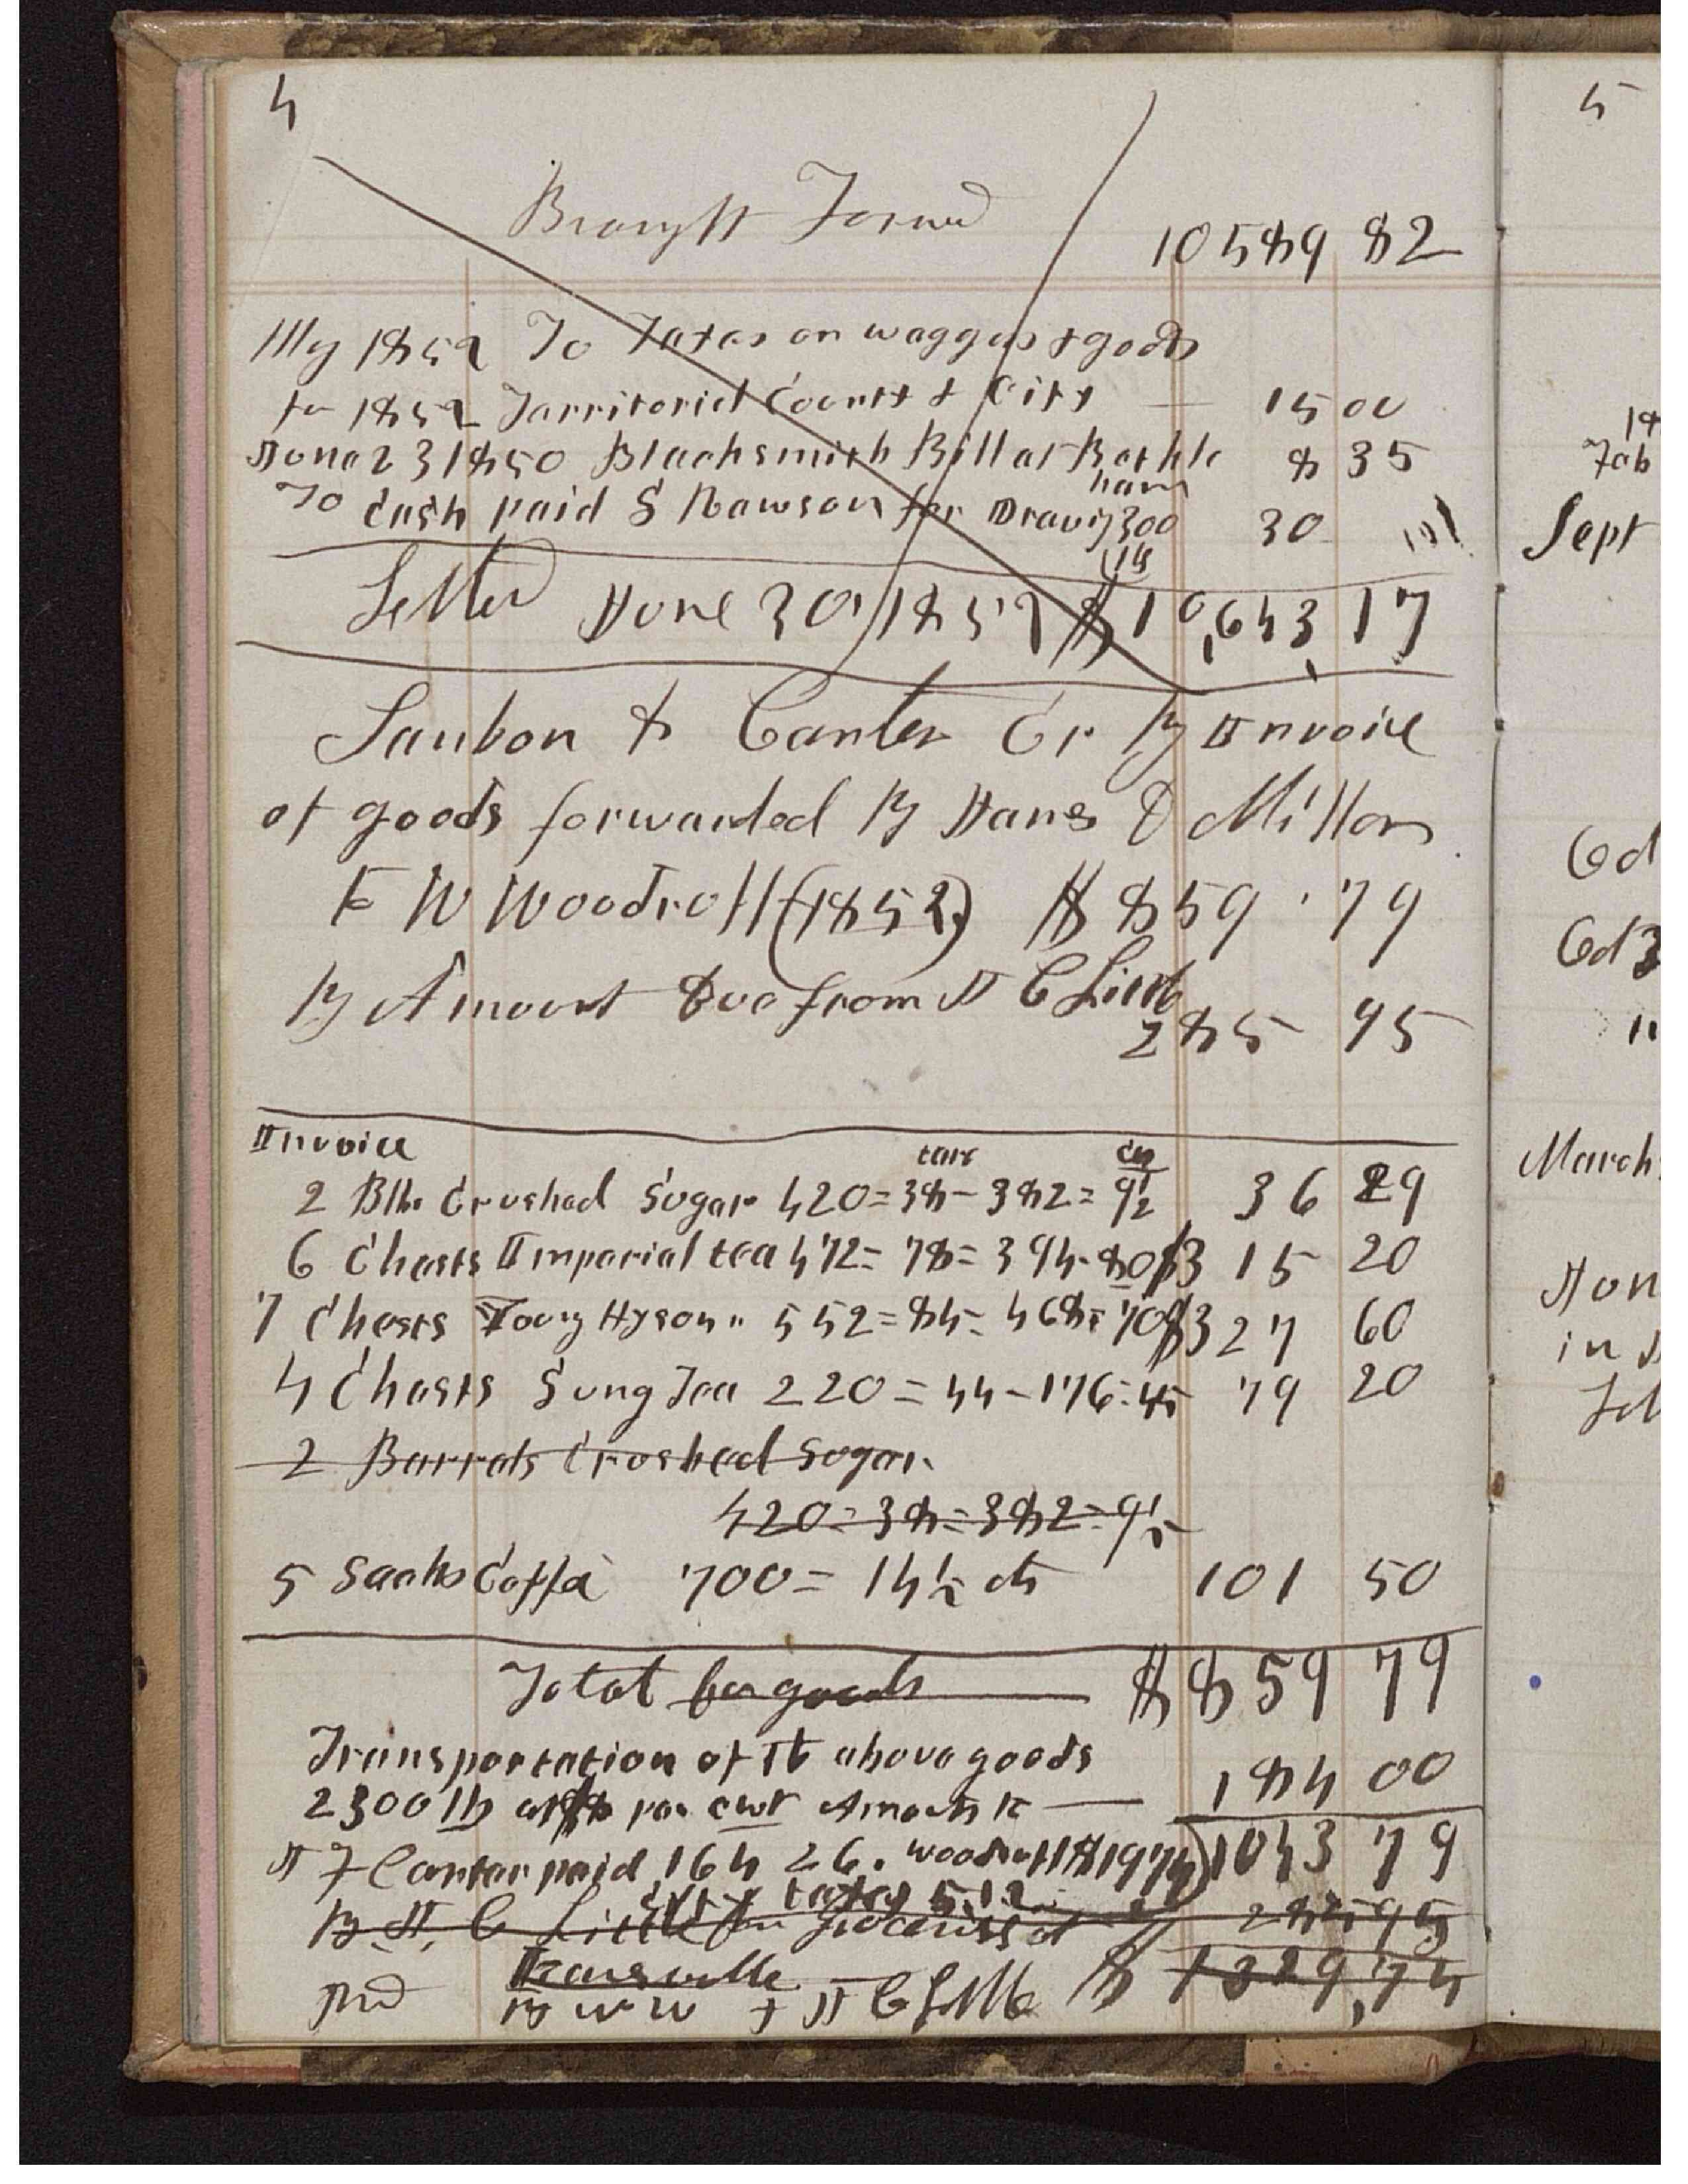 4
Brought Forwd
10589 82
My 1852 To Taxes on waggons & goods
for 1852 Territoriel County & City — 15 00
June 23 1850 Blacksmith Bill at Bethle 8 35
ham
To Cash paid S Rawson for Draying 300 30
Settled June 30, 1852 $10,643,17
& Canter Cr By Invoice
of goods forwarded By James & Millor
E W Woodroff (1852) $859.79
By Amount Due from J C Little
285 95
Invoice
tare cts
2 Blls Crushed Sugar 420=38-382=9½ 36 29
6 Chests Imperial tea 472=78=394-80 $315 20
7 Chests Young Hyson " 552=84=468=70 $327 60
4 Chests Sung Tea 220=44-176=45 79 20
2 Barrels Crushed Sugar.
420=38=382=9½
5 Sacks Coffa 700=14½ cts 101 50
Total for goods — $859 79
Transportation of the above goods
184 00
2300 lb at $8 per cwt Amounts to —
J F Canter paid 164 26. Woodroff $19 74) 1043 79
City taxes 5.12
By J. C Little for Groceries at 285 95
$1329,74
Pd By W W & J C Little
5
18
Feb
Sept
Cd
Cd 3
March
Jun
in J